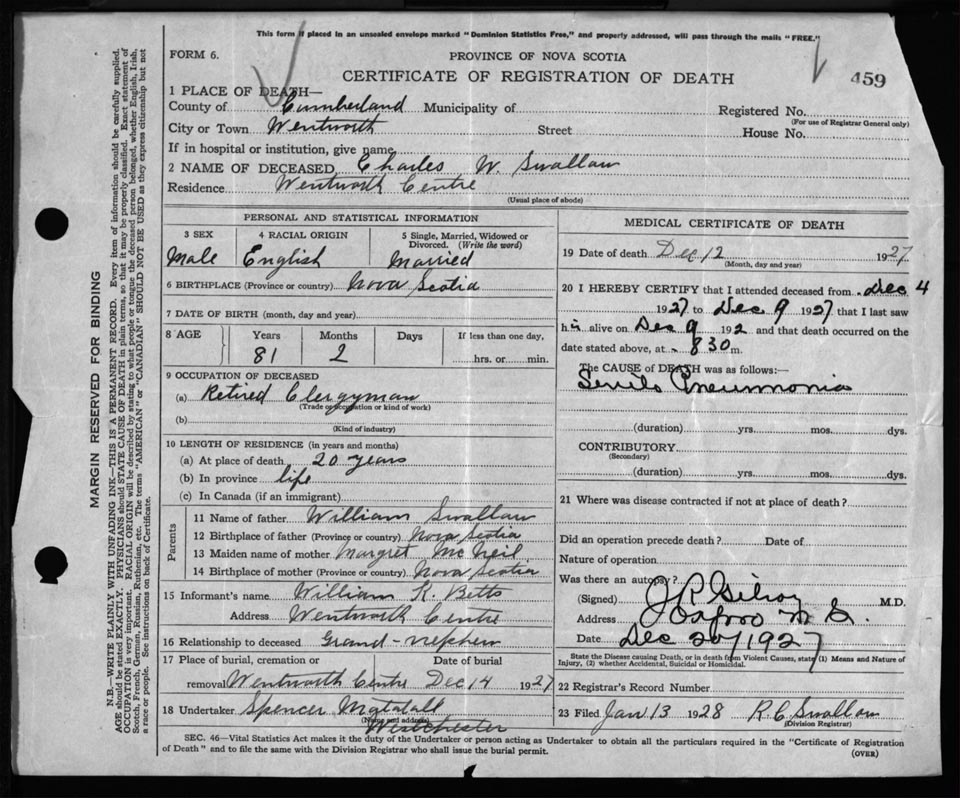 This form if placed in an unsealed envelope marked "Dominion Statistics Free," and properly addressed, will pass through the mails "FREE."
FORM 6.
PROVINCE OF NOVA SCOTIA
CERTIFICATE OF REGISTRATION OF DEATH
459
1 PLACE OF DEATH—
County of Cumberland Municipality of
Registered No.
(For use of Registrar General only)
City or Town Wentworth Street House No.
If in hospital or institution, give name
2 NAME OF DECEASED Charles W. Swallow
Residence Wentworth Centre
(Usual place of abode)
PERSONAL AND STATISTICAL INFORMATION
3 SEX
Male
4 RACIAL ORIGIN
English
5 Single, Married, Widowed or Divorced. (Write the word)
Married
6 BIRTHPLACE (Province or country) Nova Scotia
7 DATE OF BIRTH (month, day and year)
8 AGE Years Months Days If less than one day,
81 2 hrs. or min.
9 OCCUPATION OF DECEASED
(a) Retired Clergyman
(Trade or occupation or kind of work)
(b)
(Kind of industry)
10 LENGTH OF RESIDENCE (in years and months)
(a) At place of death 20 years
(b) In province life
(c) In Canada (if an immigrant)
Parents
11 Name of father William Swallow
12 Birthplace of father (Province or country) Nova Scotia
13 Maiden name of mother Margret McNeil
14 Birthplace of mother (Province or country) Nova Scotia
15 Informant's name William K. Betts
Address Wentworth Centre
16 Relationship to deceased Grand-nephew
17 Place of burial, cremation or Date of burial
removal Wentworth Centre Dec 14 1927
18 Undertaker Spencer
(Name and address)
Westchester
MEDICAL CERTIFICATE OF DEATH
19 Date of death Dec 12 1927
(Month, day and year)
20 I HEREBY CERTIFY that I attended deceased from Dec 4
1927 to Dec 9 1927 that I last saw
him alive on Dec 9 192 and that death occurred on
date stated above, at 8 30 m.
The CAUSE of DEATH was as follows:—
Senile Pneumonia
(duration) yrs. mos. dys.
CONTRIBUTORY
(Secondary)
(duration) yrs. mos. dys.
21 Where was disease contracted if not at place of death?
Did an operation precede death? Date of
Nature of operation
Was there an autopsy?
(Signed) J R Gilroy M.D.
Address Oxford N.S.
Date Dec 20/1927
State the Disease causing Death, or in death from Violent Causes, state (1) Means and Nature of
Injury, (2) whether Accidental, Suicidal or Homicidal.
22 Registrar's Record Number
23 Filed Jan 13 1928 R C Swallow
(Division Registrar)
SEC. 46—Vital Statistics Act makes it the duty of the Undertaker or person acting as Undertaker to obtain all the particulars required in the "Certificate of Registration
of Death" and to file the same with the Division Registrar who shall issue the burial permit.
(OVER)
MARGIN RESERVED FOR BINDING
N.B.—WRITE PLAINLY WITH UNFADING INK—THIS IS A PERMANENT RECORD. Every item of information should be carefully supplied.
AGE should be stated EXACTLY. PHYSICIANS should STATE CAUSE OF DEATH in plain terms, so that it may be properly classified. Exact statement of
OCCUPATION is very important. RACIAL ORIGIN will be described by stating to what people or tongue the deceased person belonged, whether English, Irish,
Scotch, French, German, Russian, Ruthenian, etc. The terms "AMERICAN" or "CANADIAN" SHOULD NOT BE USED as they express citizenship but not
a race or people. See instructions on back of Certificate.